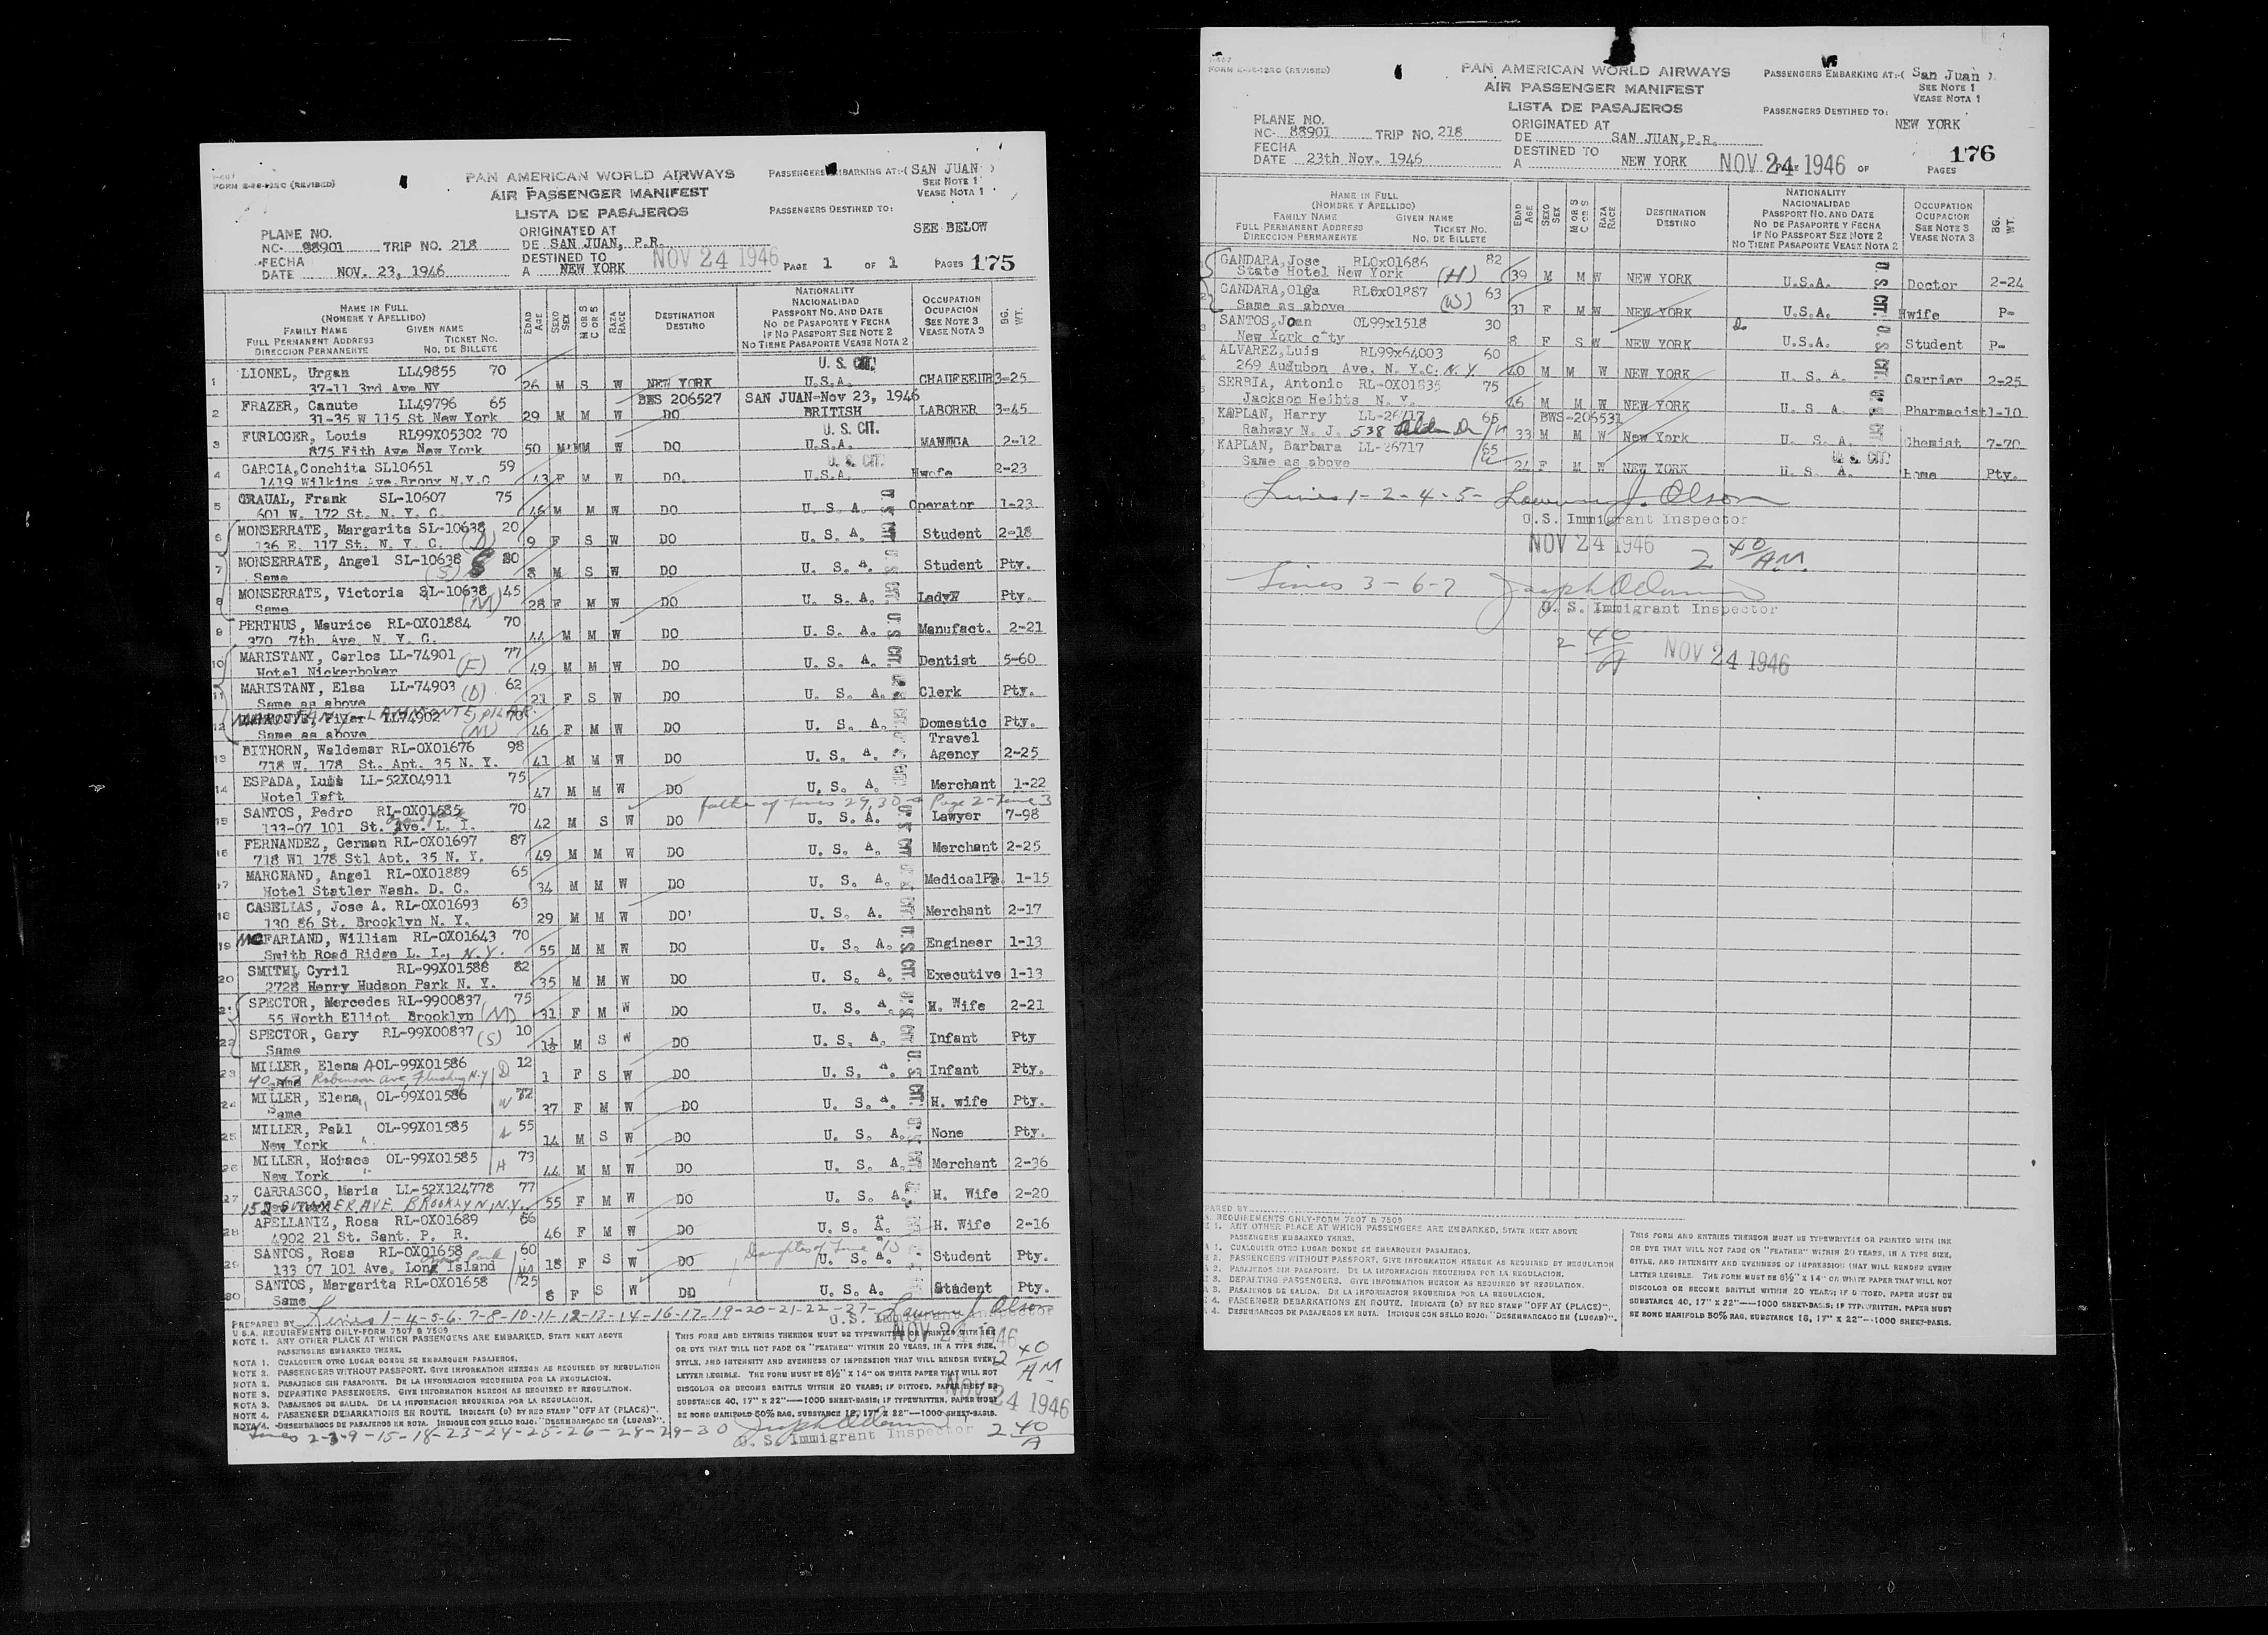 FORM E-26-122C (REVISED)
PAN AMERICAN WORLD AIRWAYS
AIR PASSENGER MANIFEST
LISTA DE PASAJEROS
PASSENGERS EMBARKING AT:-( SAN JUAN )
SEE NOTE 1
VEASE NOTA 1
PASSENGERS DESTINED TO:
SEE BELOW
PLANE NO.
NC- 88901 TRIP NO. 218
FECHA
DATE NOV. 23, 1946
ORIGINATED AT
DE SAN JUAN, P.R.
DESTINED TO
A NEW YORK
NOV 24 1946
PAGE 1 OF 1 PAGES 175
NAME IN FULL
(NOMBRE Y APELLIDO)
FAMILY NAME GIVEN NAME
FULL PERMANENT ADDRESS TICKET NO.
DIRECCION PERMANENTE NO. DE BILLETE
EDAD AGE
SEXO SEX
M OR S C OR S
RAZA RACE
DESTINATION
DESTINO
NATIONALITY
NACIONALIDAD
PASSPORT NO. AND DATE
NO. DE PASAPORTE Y FECHA
IF NO PASSPORT SEE NOTE 2
NO TIENE PASAPORTE VEASE NOTA 2
OCCUPATION
OCUPACION
SEE NOTE 3
VEASE NOTA 3
BG. WT.
1 LIONEL, Urgan LL49855 70 26 M S W NEW YORK U.S.A. U. S. CIT. CHAUFEEUR 3-25
37-11 3rd Ave NY
BWS 206527 SAN JUAN-Nov 23, 1946
2 FRAZER, Canute LL49796 65 29 M M W DO BRITISH LABORER 3-45
31-35 W 115 St New York
3 FURLOGER, Louis RL99X05302 70 50 M M W DO U.S.A. U. S. CIT. 2-12
875 Fith Ave New York
4 GARCIA,Conchita SL10651 59 43 F M W DO. U.S.A. U. S. CIT. Hwofe 2-23
1419 Wilkins Ave.Bronx N.Y.C
5 GRAUAL, Frank SL-10607 75 46 M M W DO U. S. A. Operator 1-23
601 W. 172 St. N. Y. C.
6 MONSERRATE, Margarita SL-10638 20 9 F S W DO U. S. A. Student 2-18
136 E. 117 St. N. Y. C. (D)
7 MONSERRATE, Angel SL-10638 80 8 M S W DO U. S. A. Student Pty.
Same (S)
8 MONSERRATE, Victoria SL-10638 45 28 F M W DO U. S. A. Lady Pty.
Same (M)
9 PERTHUS, Maurice RL-OX01884 70 44 M M W DO U. S. A. Manufact. 2-21
370 7th. Ave. N. Y. C.
10 MARISTANY, Carlos LL-74901 77 49 M M W DO U. S. A. Dentist 5-60
Hotel Nickerboker (F)
11 MARISTANY, Elsa LL-74903 62 21 F S W DO U. S. A. Clerk Pty.
Same as above (D)
12 LAHMONTE, PILAR LL74902 70 46 F M W DO U. S. A. Domestic Pty.
Same as above (M)
13 BITHORN, Waldemar RL-OX01676 98 41 M M W DO U. S. A. Travel Agency 2-25
718 W. 178 St. Apt. 35 N. Y.
14 ESPADA, Luis LL-52X04911 75 47 M M W DO U. S. A. Merchant 1-22
Hotel Taft
father of lines 29, 30 - Page 2 - line 3
15 SANTOS, Pedro RL-OX01685 70 42 M S W DO U. S. A. Lawyer 7-98
133-07 101 St. Ave. L. I.
16 FERNANDEZ, German RL-OX01697 87 49 M M W DO U. S. A. Merchant 2-25
718 W1 178 Stl Apt. 35 N. Y.
17 MARCHAND, Angel RL-OX01889 65 34 M M W DO U. S. A. Medical 1-15
Hotel Statler Wash. D. C.
18 CASELLAS, Jose A. RL-OX01693 63 29 M M W DO U. S. A. Merchant 2-17
130 86 St. Brooklyn N. Y.
19 McFARLAND, William RL-OX01643 70 55 M M W DO U. S. A. Engineer 1-13
Smith Road Ridge L. I., N.Y.
20 SMITH, Cyril RL-99X01588 82 35 M M W DO U. S. A. Executive 1-13
2728 Henry Hudson Park N. Y.
21 SPECTOR, Mercedes RL-9900837 75 31 F M W DO U. S. A. H. Wife 2-21
55 Worth Elliot Brooklyn (M)
22 SPECTOR, Gary RL-99X00837 10 1½ M S W DO U. S. A. Infant Pty
Same (S)
23 MILLER, Elena A OL-99X01586 12 1 F S W DO U. S. A. Infant Pty.
Robinson Ave, Flushing N.Y. D
24 MILLER, Elena OL-99X01586 72 37 F M W DO U. S. A. H. wife Pty.
Same W
25 MILLER, Paul OL-99X01585 55 14 M S W DO U. S. A. None Pty.
New York
26 MILLER, Horace OL-99X01585 73 44 M M W DO U. S. A. Merchant 2-36
New York H
27 CARRASCO, Maria LL-52X124778 77 55 F M W DO U. S. A. H. Wife 2-20
SUMNER AVE. BROOKLYN, N.Y.
28 APELLANIZ, Rosa RL-OX01689 66 46 F M W DO U. S. A. H. Wife 2-16
4902 21 St. Sant. P. R.
Daughter of line 15
29 SANTOS, Rosa RL-OX01658 60 18 F S W DO U. S. A. Student Pty.
133 07 101 Ave. Long Island
30 SANTOS, Margarita RL-OX01658 25 8 F S W DO U. S. A. Student Pty.
Same
PREPARED BY Lines 1-4-5-6-7-8-10-11-12-13-14-16-17-19-20-21-22-27- Lawrence J. Olson
U.S. Immigrant Inspector
NOV 24 1946
2 40 AM
U.S.A. REQUIREMENTS ONLY-FORM 7507 & 7509
NOTE 1. ANY OTHER PLACE AT WHICH PASSENGERS ARE EMBARKED, STATE NEXT ABOVE
PASSENGERS EMBARKED THERE.
NOTA 1. CUALQUIER OTRO LUGAR DONDE SE EMBARQUEN PASAJEROS.
NOTE 2. PASSENGERS WITHOUT PASSPORT. GIVE INFORMATION HEREON AS REQUIRED BY REGULATION
NOTA 2. PASAJEROS SIN PASAPORTE. DE LA INFORMACION REQUERIDA POR LA REGULACION.
NOTE 3. DEPARTING PASSENGERS. GIVE INFORMATION HEREON AS REQUIRED BY REGULATION.
NOTA 3. PASAJEROS DE SALIDA. DE LA INFORMACION REQUERIDA POR LA REGULACION.
NOTE 4. PASSENGER DEBARKATIONS EN ROUTE. INDICATE (D) BY RED STAMP "OFF AT (PLACE)".
NOTA 4. DESEMBARCOS DE PASAJEROS EN RUTA. INDIQUE CON SELLO ROJO: "DESEMBARCADO EN (LUGAR)".
THIS FORM AND ENTRIES THEREON MUST BE TYPEWRITTEN OR PRINTED WITH INK
OR DYE THAT WILL NOT FADE OR "FEATHER" WITHIN 20 YEARS, IN A TYPE SIZE,
STYLE, AND INTENSITY AND EVENNESS OF IMPRESSION THAT WILL RENDER EVERY
LETTER LEGIBLE. THE FORM MUST BE 8½" X 14" ON WHITE PAPER THAT WILL NOT
DISCOLOR OR BECOME BRITTLE WITHIN 20 YEARS; IF DITTOED, PAPER MUST BE
SUBSTANCE 40, 17" X 22"----1000 SHEET-BASIS; IF TYPEWRITTEN, PAPER MUST
BE BOND MANIFOLD 50% RAG, SUBSTANCE 18, 17" X 22"---1000 SHEET-BASIS.
NOV 24 1946
Lines 2-3-9-15-18-23-24-25-26-28-29-30
U. S. Immigrant Inspector
2 40 A
FORM E-26-122C (REVISED)
PAN AMERICAN WORLD AIRWAYS
AIR PASSENGER MANIFEST
LISTA DE PASAJEROS
PASSENGERS EMBARKING AT:-( San Juan )
SEE NOTE 1
VEASE NOTA 1
PASSENGERS DESTINED TO:
NEW YORK
PLANE NO.
NC- 88901 TRIP NO. 218
FECHA
DATE 23th Nov. 1946
ORIGINATED AT
DE SAN JUAN,P.R.
DESTINED TO
A NEW YORK
NOV 24 1946
PAGE OF PAGES 176
NAME IN FULL
(NOMBRE Y APELLIDO)
FAMILY NAME GIVEN NAME
FULL PERMANENT ADDRESS TICKET NO.
DIRECCION PERMANENTE NO. DE BILLETE
EDAD AGE
SEXO SEX
M OR S C OR S
RAZA RACE
DESTINATION
DESTINO
NATIONALITY
NACIONALIDAD
PASSPORT NO. AND DATE
NO. DE PASAPORTE Y FECHA
IF NO PASSPORT SEE NOTE 2
NO TIENE PASAPORTE VEASE NOTA 2
OCCUPATION
OCUPACION
SEE NOTE 3
VEASE NOTA 3
BG. WT.
GANDARA, Jose RL0x01686 82 39 M M W NEW YORK U.S.A. Doctor 2-24
State Hotel New York (H)
GANDARA, Olga RL0x01887 63 37 F M W NEW YORK U.S.A. Hwife P-
Same as above (W)
SANTOS, Joan OL99x1518 30 8 F S W NEW YORK U.S.A. Student P-
New York city
ALVAREZ, Luis RL99x64003 60 40 M M W NEW YORK U. S. A. Carrier 2-25
269 Audubon Ave. N. Y.C. N.Y.
SERBIA, Antonio RL-OX01835 75 46 M M W NEW YORK U. S. A. Pharmacist 1-10
Jackson Heihts N. Y.
KAPLAN, Harry LL-26717 65 BWS-206531 33 M M W New York U. S. A. Chemist 7-70
Rahway N. J. 538 Alden Dr H
KAPLAN, Barbara LL-26717 65 24 F M W NEW YORK U. S. A. U. S. CIT. Home Pty.
Same as above W
Lines 1-2-4-5- Lawrence J. Olson
U.S. Immigrant Inspector
NOV 24 1946 2 40 AM.
Lines 3-6-7
U. S. Immigrant Inspector
2 40 A NOV 24 1946
PARED BY
REQUIREMENTS ONLY-FORM 7507 & 7509
1. ANY OTHER PLACE AT WHICH PASSENGERS ARE EMBARKED, STATE NEXT ABOVE
PASSENGERS EMBARKED THERE.
1. CUALQUIER OTRO LUGAR DONDE SE EMBARQUEN PASAJEROS.
2. PASSENGERS WITHOUT PASSPORT. GIVE INFORMATION HEREON AS REQUIRED BY REGULATION
2. PASAJEROS SIN PASAPORTE. DE LA INFORMACION REQUERIDA POR LA REGULACION.
3. DEPARTING PASSENGERS. GIVE INFORMATION HEREON AS REQUIRED BY REGULATION.
3. PASAJEROS DE SALIDA. DE LA INFORMACION REQUERIDA POR LA REGULACION.
4. PASSENGER DEBARKATIONS EN ROUTE. INDICATE (D) BY RED STAMP "OFF AT (PLACE)".
4. DESEMBARCOS DE PASAJEROS EN RUTA. INDIQUE CON SELLO ROJO: "DESEMBARCADO EN (LUGAR)".
THIS FORM AND ENTRIES THEREON MUST BE TYPEWRITTEN OR PRINTED WITH INK
OR DYE THAT WILL NOT FADE OR "FEATHER" WITHIN 20 YEARS, IN A TYPE SIZE,
STYLE, AND INTENSITY AND EVENNESS OF IMPRESSION THAT WILL RENDER EVERY
LETTER LEGIBLE. THE FORM MUST BE 8½" X 14" ON WHITE PAPER THAT WILL NOT
DISCOLOR OR BECOME BRITTLE WITHIN 20 YEARS; IF DITTOED, PAPER MUST BE
SUBSTANCE 40, 17" X 22"----1000 SHEET-BASIS; IF TYPEWRITTEN, PAPER MUST
BE BOND MANIFOLD 50% RAG, SUBSTANCE 18, 17" X 22"---1000 SHEET-BASIS.